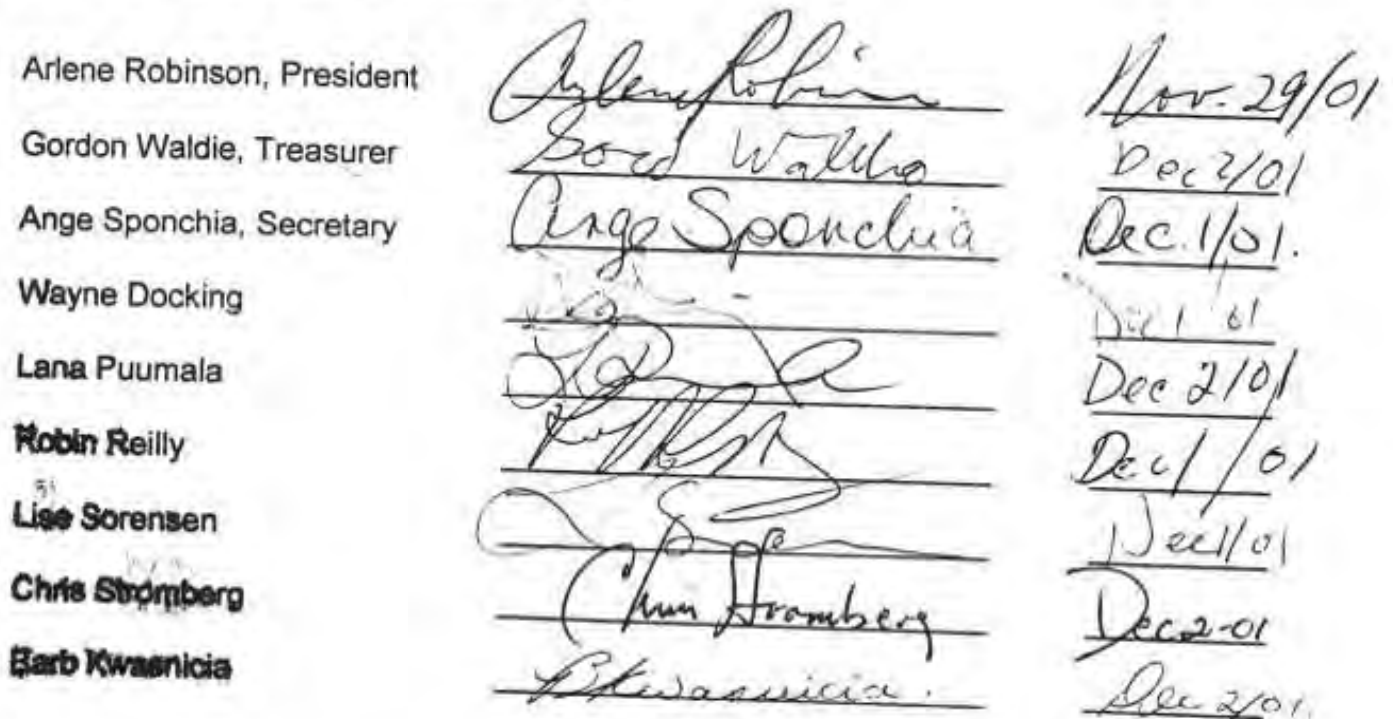 Arlene Robinson, President Arlene Robinson Nov. 29/01
Gordon Waldie, Treasurer Gord Waldie Dec 2/01
Ange Sponchia, Secretary Ange Sponchia Dec. 1/01.
Wayne Docking Dec 1 01
Lana Puumala Dec 2/01
Robin Reilly Dec 1/01
Lise Sorensen Dec 1/01
Chris Stromberg Chris Stromberg Dec 2-01
Barb Kwasnicia BKwasnicia. Dec 2/01.